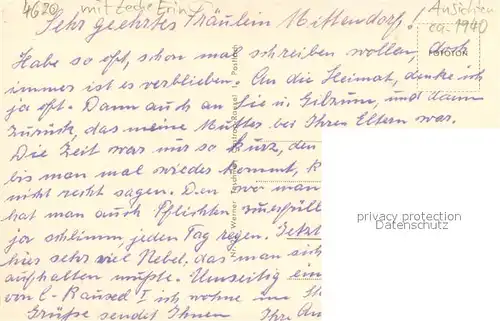 4620 mit Zeche Erin Ansichten
ca. 1940
Sehr geehrtes Fräulein Mittendorf!
Habe so oft, schon mal schreiben wollen, doch
immer ist es verblieben. An die Heimat, denke ich
ja oft. Dann auch an Sie u. und dann
zurück, das meine Mutter bei Ihren Eltern war.
Die Zeit war mir so kurz, den
bis man mal wieder kommt, k
nicht recht sagen. Den wo man
hat man auch Pflichten zu erfüll
ja schlimm, jeden Tag regen. Jetzt
hier sehr viel Nebel, das man sich
aufhalten mußte. Umseitig ein
von C-Rauxel I ich wohne im
Grüße sendet Ihnen Ihre
Werner Castrop-Rauxel 1, Postfach
privacy protection
Datenschutz